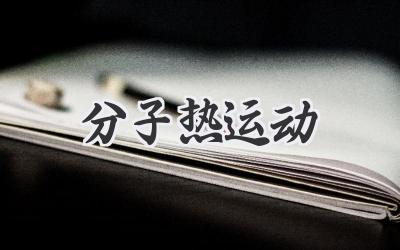 分子热运动